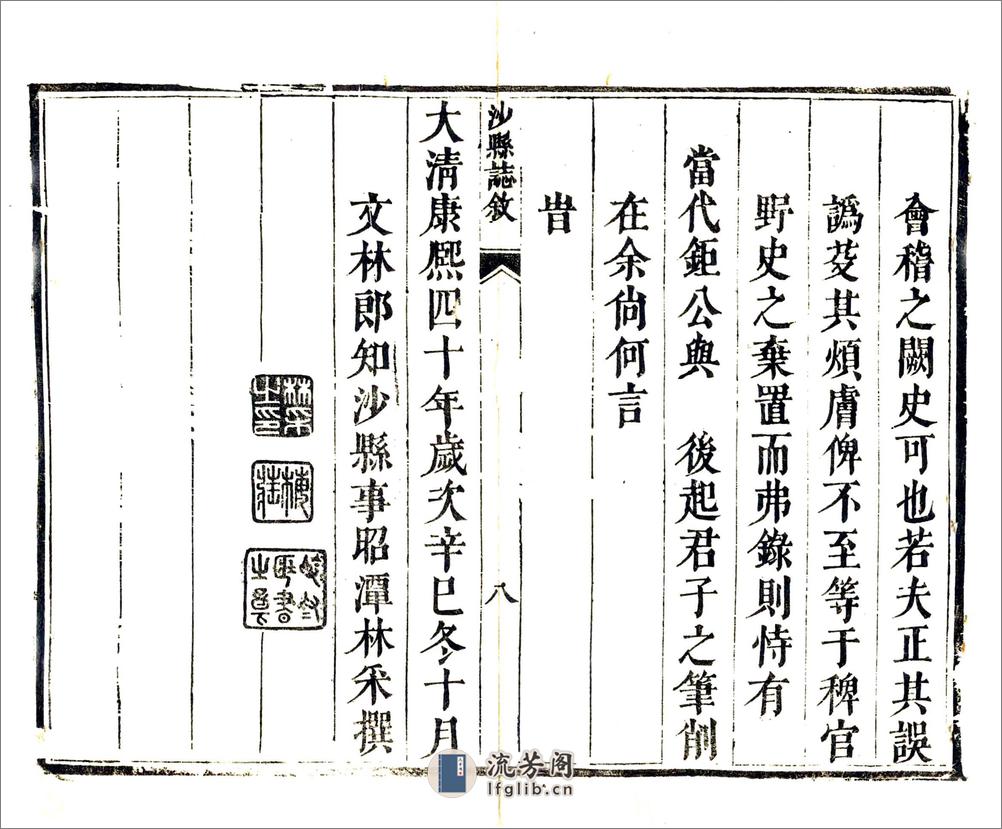 會稽之闕史可也若夫正其誤
譌芟其煩膚俾不至等于稗官
野史之棄置而弗錄則恃有
當代鉅公與　後起君子之筆削
在余尙何言
旹
沙縣誌敘
八
大淸康熈四十年歲次辛巳冬十月
文林郎知沙縣事昭潭林采撰
林采之印
流芳阁
lfglib.cn